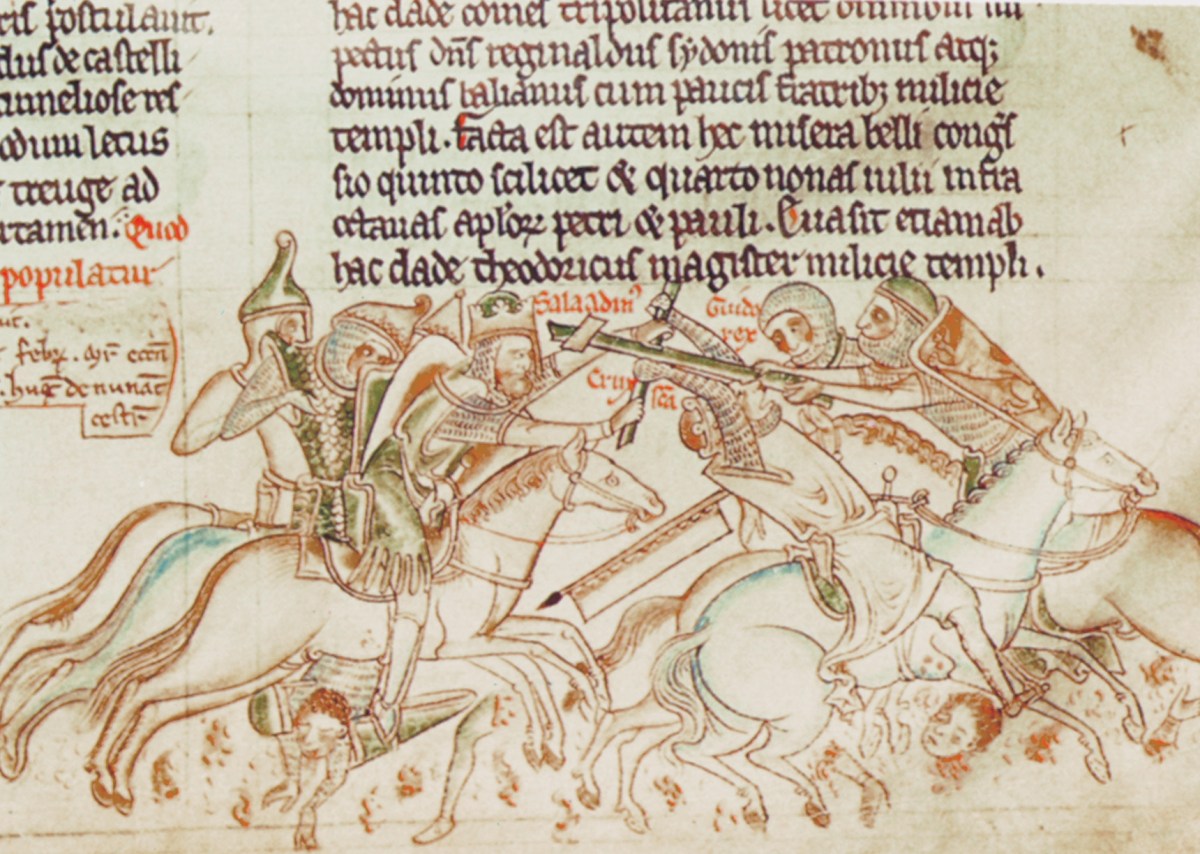 postulauit.
dus de castelli
letus
treuge ad
tamen. Quod
populatur
febr.
hug de nunant
cestr
hac clade comes tripolitanus licet omnibus
pectus dns reginaldus sydonis patronus atq;
dominus balianus cum paucis fratrib; milicie
templi. Facta est autem hec misera belli congs
sio quinto scilicet & quarto nonas iulii infra
octauas aplor petri & pauli. Euasit etiam ab
hac clade theodoricus magister milicie templi.
Saladin
Guido
rex
Crux
sca